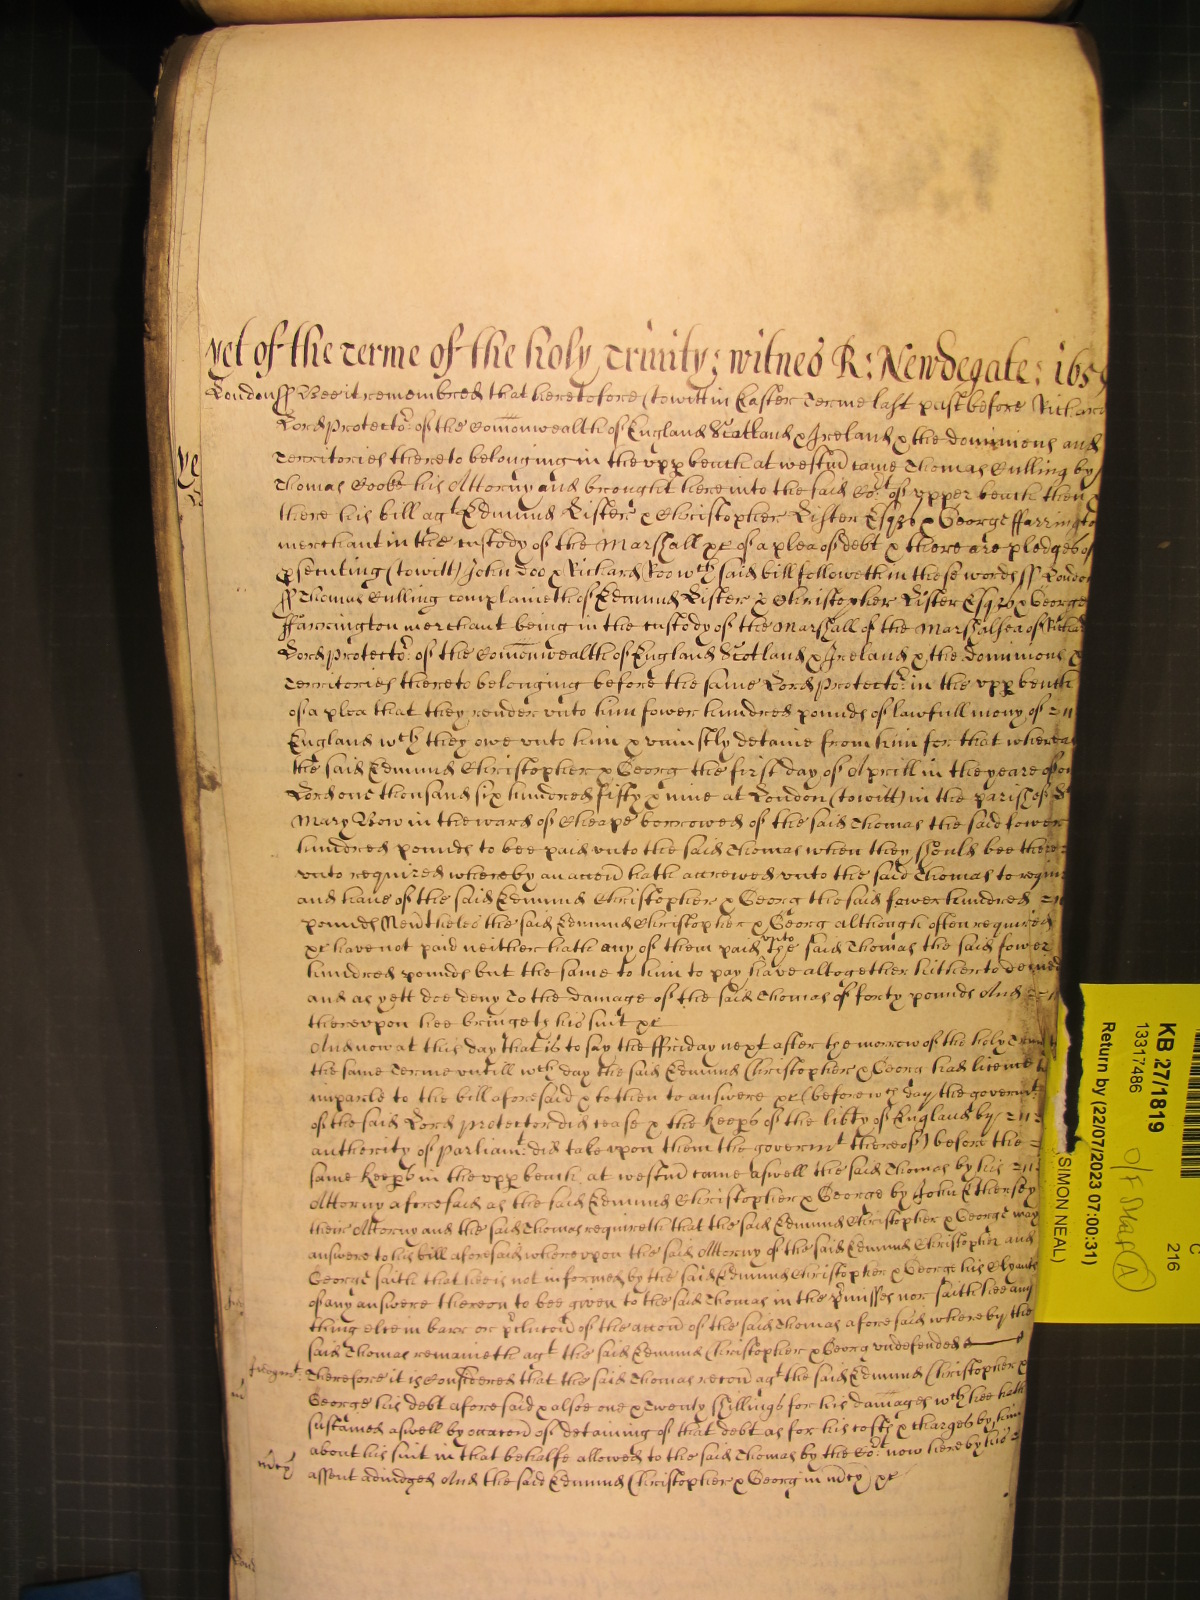 yet of the terme of the holy Trinity: witnes R: Newdegate: 165
London ss Bee it remembred that heretofore (to witt in Easter Terme last past before Richard
Lord protector. of the Comonwealth of England Scotland & Ireland & the dominions and
Territories thereto belonging in the upp bench at westm came Thomas Culling by
Thomas Cooke his Attorny and brought here into the said Cort of upper bench then &
there his bill agt Edmund Lister & Christopher Lister Esqrs & George ffarrington
merchant in the custody of the Marshall &c of a plea of debt & there are pledges of
psecuting (to witt) John Doo & Richard Roo wch said bill followeth in these words ss London
ss Thomas Culling complaineth of Edmund Lister & Christopher Lister Esqrs & George
ffarrington merchant being in the custody of the Marshall of the Marshalsea of Richard
Lord protector. of the Comonwealth of England Scotland & Ireland & the dominions &
Territories thereto belonging before the same Lord protector. in the upp bench
of a plea that they render unto him fower hundred pounds of lawfull mony of
England wch they owe unto him & uniustly detaine from him for that whereas
the said Edmund Christopher & Georg the first day of Aprill in the yeare of our
Lord one thousand six hundred fifty & nine at London (to witt) in the parish of St
Mary Bow in the ward of Cheape borrowed of the said Thomas the said fower
hundred pounds to bee paid unto the said Thomas when they should bee there
unto required whereby an accon hath accrewed unto the said Thomas to require
and have of the said Edmund Christopher & George the said fower hundred
pounds Nevtheles the said Edmund Christopher & Georg although often required
&c have not paid neither hath any of them paid unto the said Thomas the said fower
hundred pounds but the same to him to pay have altogether hitherto denied
and as yett doe deny To the damage of the said Thomas of forty pounds And
thereupon hee bringeth his suit &c
And now at this day that is to say the ffriday next after the morrow of the holy Trinity
the same Terme untill wch day the said Edmund Christopher & Georg had licence to
imparle to the bill aforesaid & to then to answere &c (before wch day the governmt
of the said Lord protector did cease & the Keeps of the libty of England by
authority of parliamt. did take upon them the governmt thereof) before the
same Keeps in the upp bench at westm came aswell the said Thomas by his
Attorny aforesaid as the said Edmund Christopher & George by John Ethersey
their Attorny and the said Thomas requireth that the said Edmund Christopher & George may
answere to his bill aforesaid whereupon the said Attorny of the said Edmund Christopher and
George saith that hee is not informed by the said Edmund Christopher & George his Clyants
of any answere thereon to bee given to the said Thomas in the pmisses nor saith hee any
thing else in barr or pclucon of the accon of the said Thomas aforesaid whereby the
said Thomas remaineth agt the said Edmund Christopher & Georg undefended
Judgmt. Therefore it is considered that the said Thomas recov agt the said Edmund Christopher &
George his debt aforesaid & alsoe one & twenty shillings for his damages wch hee hath
sustained aswell by occacon of detaining of that debt as for his costs & charges by him
about his suit in that behalfe allowed to the said Thomas by the Cort now here by his
assent adiudged And the said Edmund Christopher & Georg in mcy &c
mcy
KB 27/1819
13317486
216
Return by (22/07/2023 07:00:31)
(SIMON NEAL)